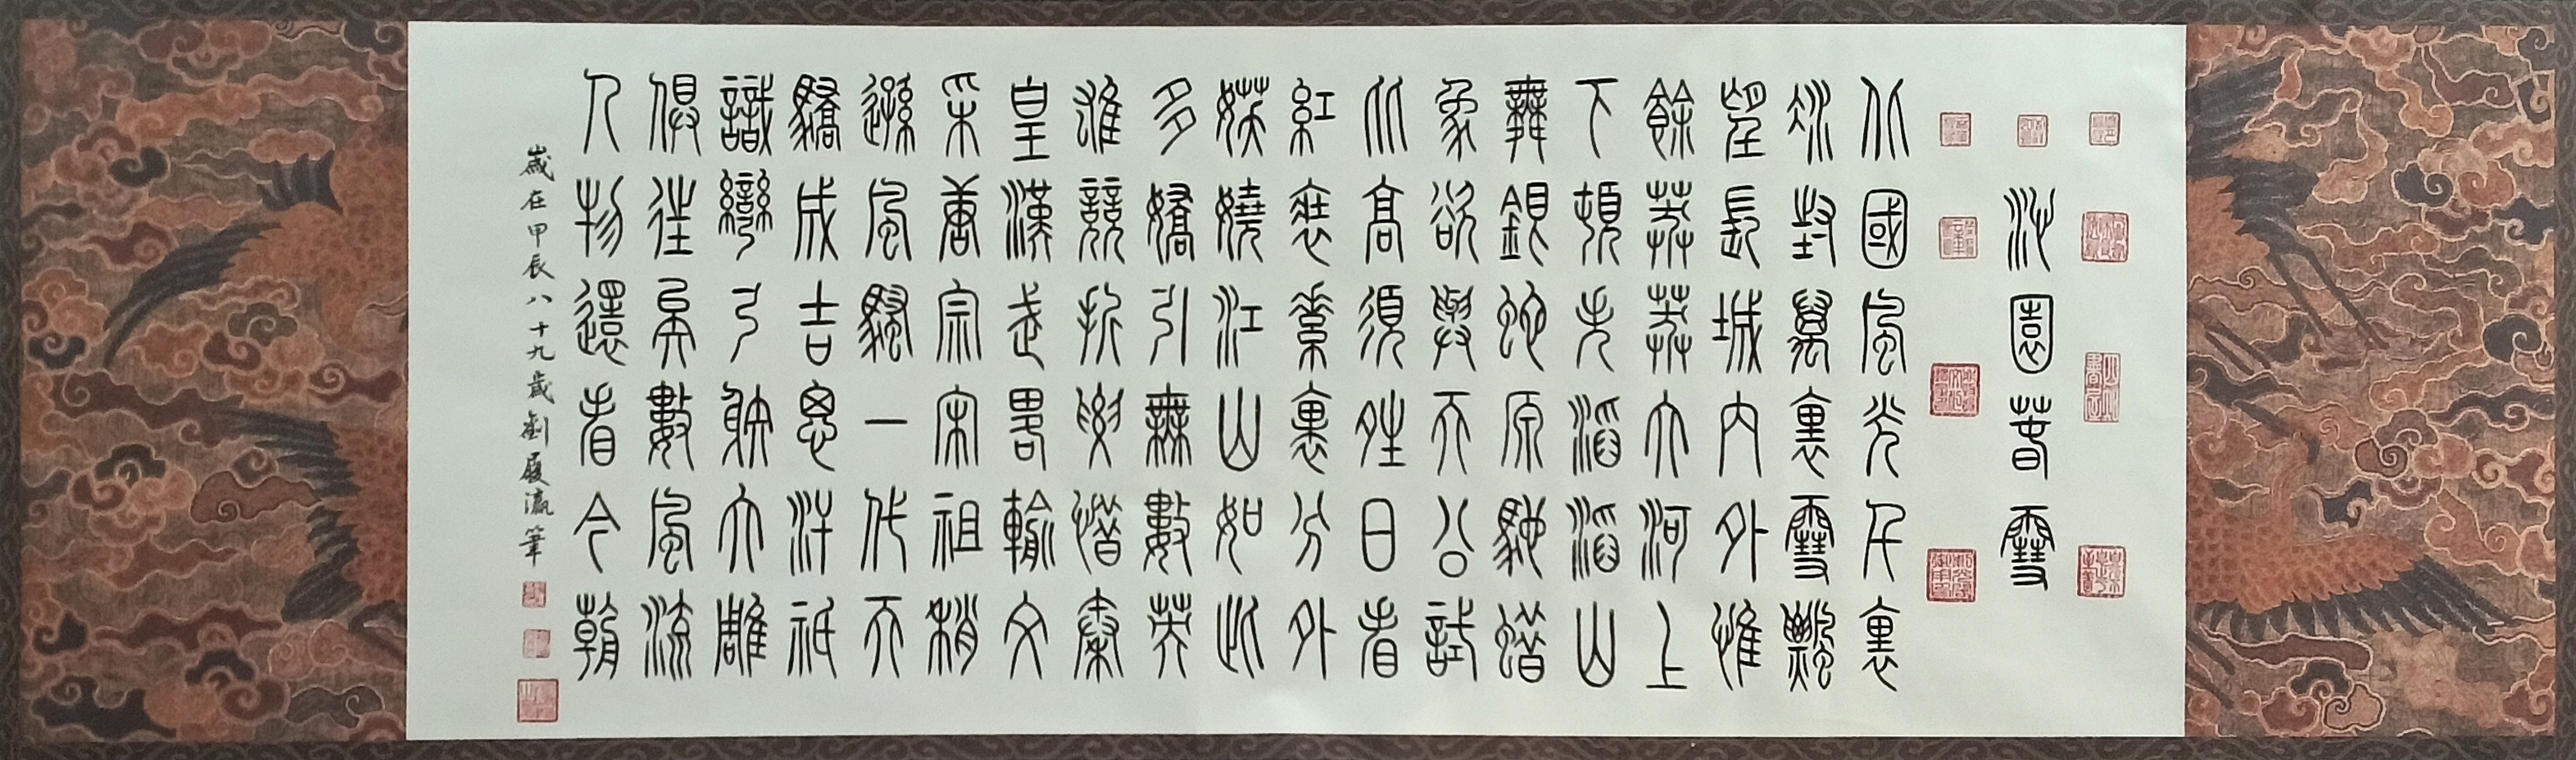 沁園春雪
北國風光千裏
冰封萬裏雪飄
望長城內外惟
餘莽莽大河上
下頓失滔滔山
舞銀蛇原馳蠟
象欲與天公試
比高須晴日看
紅裝素裹分外
妖嬈江山如此
多嬌引無數英
雄競折腰惜秦
皇漢武略輸文
采唐宗宋祖稍
遜風騷一代天
驕成吉思汗祇
識彎弓射大雕
俱往矣數風流
人物還看今朝
歲在甲辰八十九歲劉履瀛筆